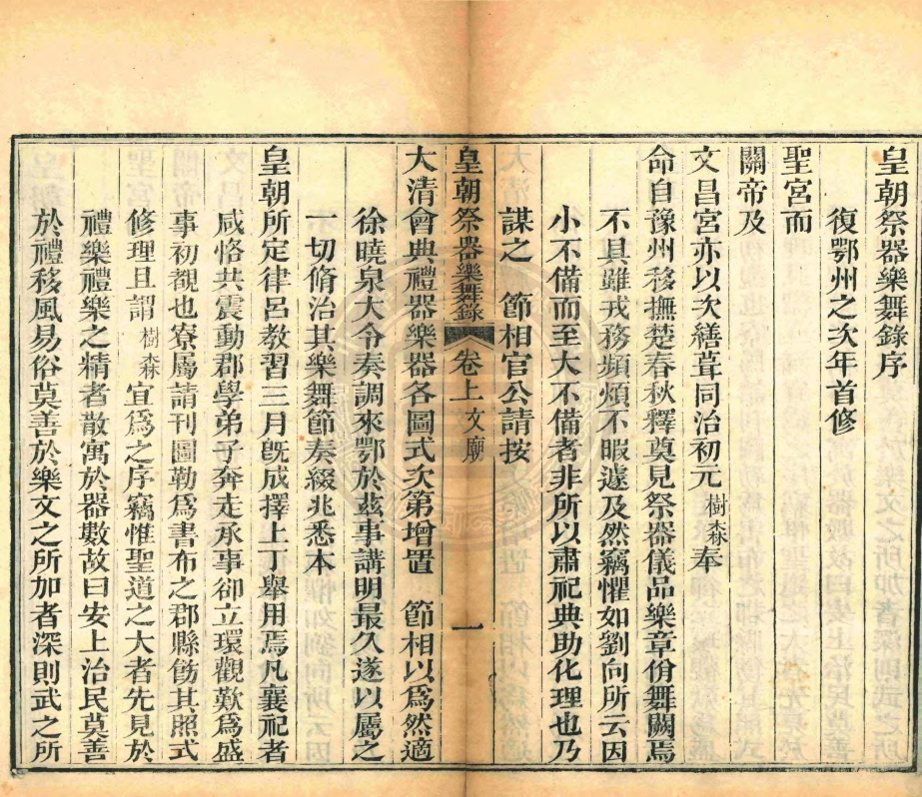 皇朝祭器樂舞錄序
復鄂州之次年首修
聖宮而
關帝及
文昌宮亦以次繕葺同治初元樹森奉
命自豫州移撫楚春秋釋奠見祭器儀品樂章佾舞闕焉
不具雖戎務頻煩不暇遽及然竊懼如劉向所云因
小不備而至大不備者非所以肅祀典助化理也乃
謀之 節相官公請按
皇朝祭器樂舞錄 卷上 文廟 一
大清會典禮器樂器各圖式次第增置 節相以爲然適
徐曉泉大令奏調來鄂於茲事講明最久遂以屬之
一切脩治其樂舞節奏綴兆悉本
皇朝所定律呂教習三月旣成擇上丁舉用焉凡襄祀者
咸恪共震動郡學弟子奔走承事卻立環觀歎爲盛
事初覩也寮屬請刊圖勒爲書布之郡縣飭其照式
修理且謂樹森宜爲之序竊惟聖道之大者先見於
禮樂禮樂之精者散寓於器數故曰安上治民莫善
於禮移風易俗莫善於樂文之所加者深則武之所